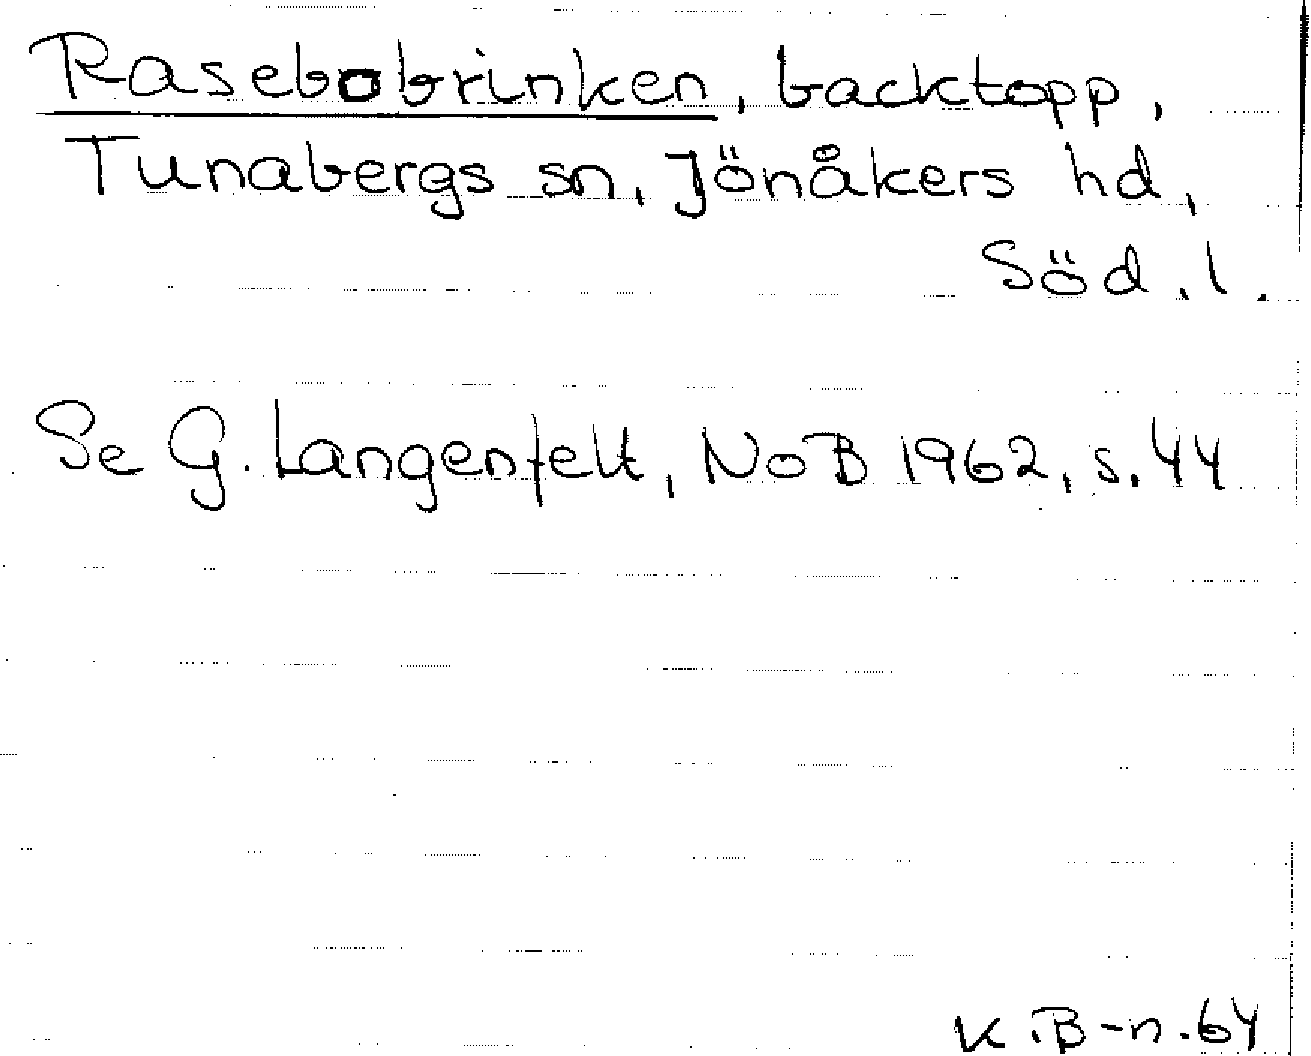 Rasebobrinken, backtopp,
Tunabergs sn, Jönåkers hd,
Söd. l.
Se G. Langenfelt, NoB 1962, s. 44
K. B-n. 64